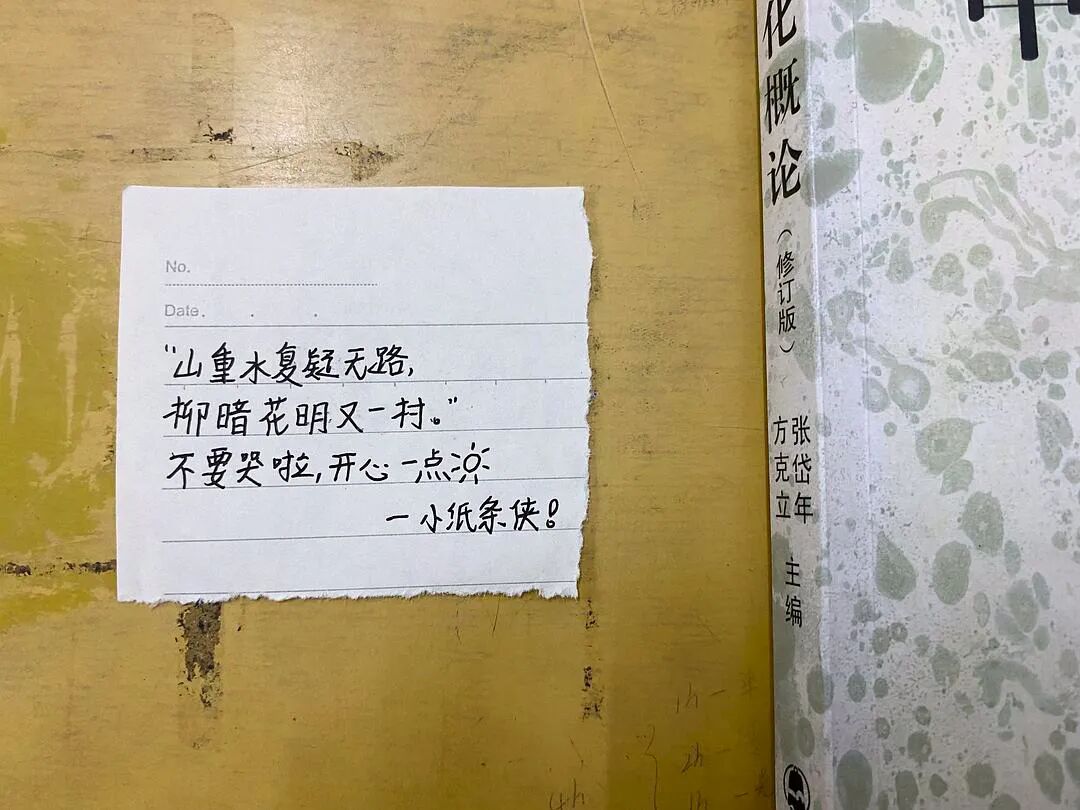 No.
Date.
“山重水复疑无路,
柳暗花明又一村。”
不要哭啦,开心一点
一小纸条侠!
化概论(修订版)
张岱年
方克立
主编